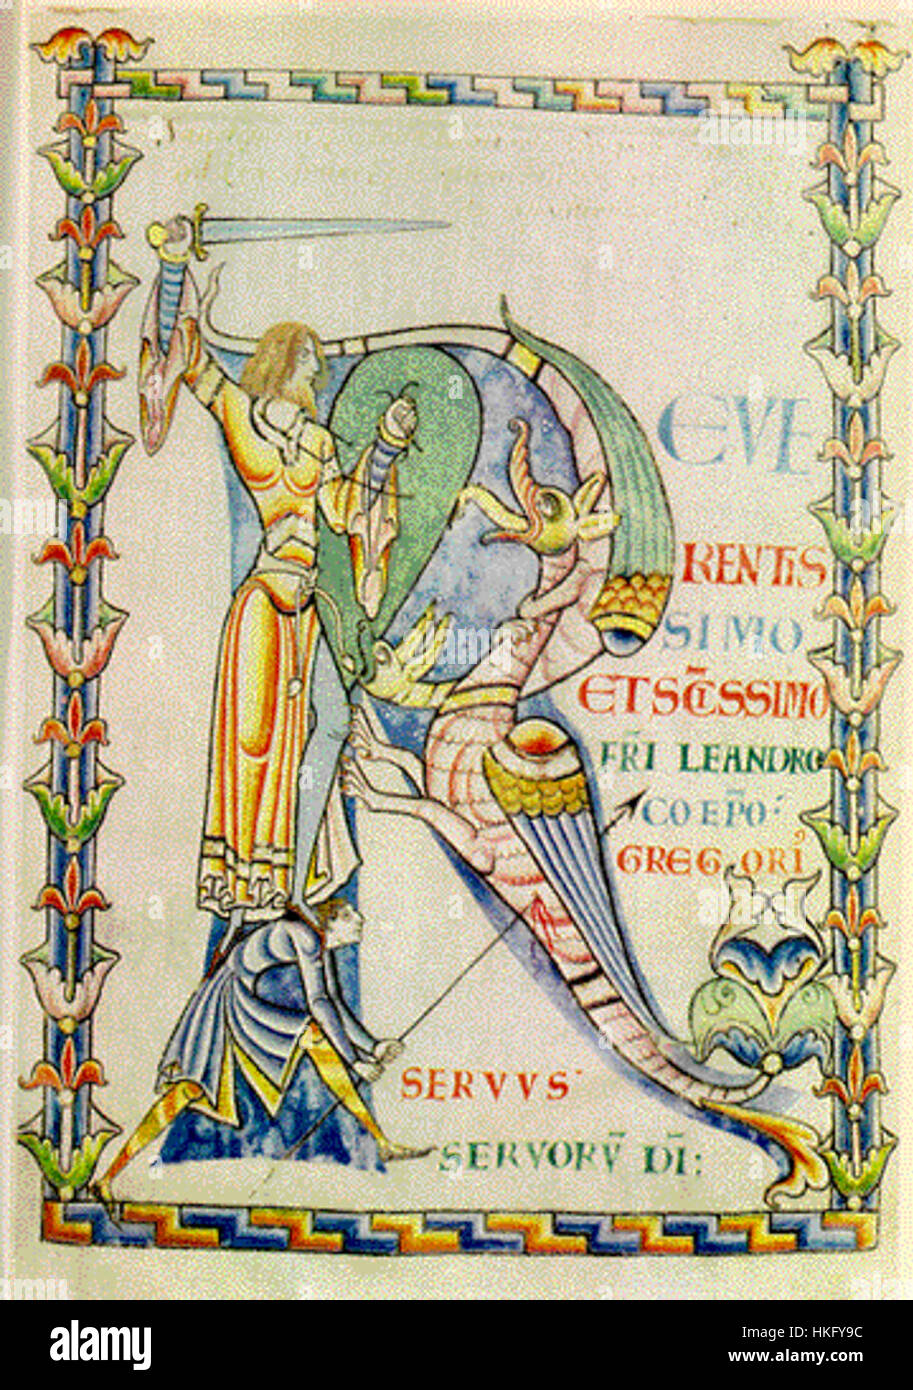 R EVE
RENTIS
SIMO
ET SC̄ISSIMO
FR̄I LEANDRO
COEP̄O:
GREGORI⁹
SERVVS·
SERVORV̄ DĪ:
alamy
Image ID: HKFY9C
www.alamy.com